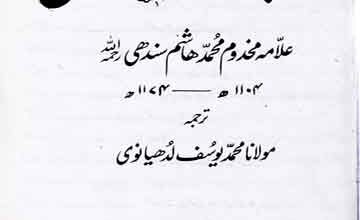 علامہ مخدوم محمد ہاشم سندھی رحمہ اللہ
۱۱۰۴ ھ —— ۱۱۷۴ ھ
ترجمہ
مولانا محمد یوسف لدھیانوی